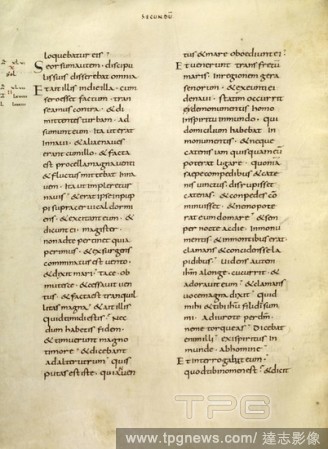 SECUNDŪ
loquebatur eis·
Seorsumautem· discipu
lissuis disserebat omnia
Et aitillis indieilla· cum
seroesset factum· tran
seamus contra· & di
mittentes turbam· ad
sumunteum· Ita uterat
innaui· & aliaenaues
erant cumillo· & facta
est procellamagnauenti
& fluctus mittebat Inna
uem· Ita ut impleretur
nauis· & erat ipse inpup
pi supra ceruical dormi
ens· & excitant eum· &
dicunt ei· magister·
nonadte pertinet quia
perimus· & exsurgens
comminatus est uento·
& dixit mari· Tace· ob
mutesce· & cessauit uen
tus· & factaest tranquil
litas magna· & aitillis
quidtimidiestis· Nec
dum habetis fidem·
& timuerunt magno
timore· & dicebant
adalterutrum· quis
putas estiste· quia&uen
tus&mare oboediunt ei·
Et uenerunt trans fretū
maris· Inregionem gera
senorum· & exeunti ei
denaui· statim occurrit
demonumentis homo
Inspiritu inmundo· qui
domicilium habebat in
monumentis· & neque
catenis iam quisquam
poterat ligare· quoniā
saepe compedibus & cate
nis uinctus· disrupisset
catenas· & conpedes cō
minuisset· & nemo pote
rat eum domare· & sem
per nocte ac die· Inmonu
mentis & inmontibus erat
clamans & concidens se la
pidibus· Uidens autem
ihm alonge· cucurrit· &
adorauit eum· & clamans
uoce magna dixit· quid
mihi & tibi ihu fili dī sum
mi· adiuro te per dm·
ne me torqueas· Dicebat
enim illi· exi spiritus in
munde· abhomine·
Et interrogabat eum·
quod tibi nomen est· & dicit
TPG
www.tpgnews.com/ 達志影像